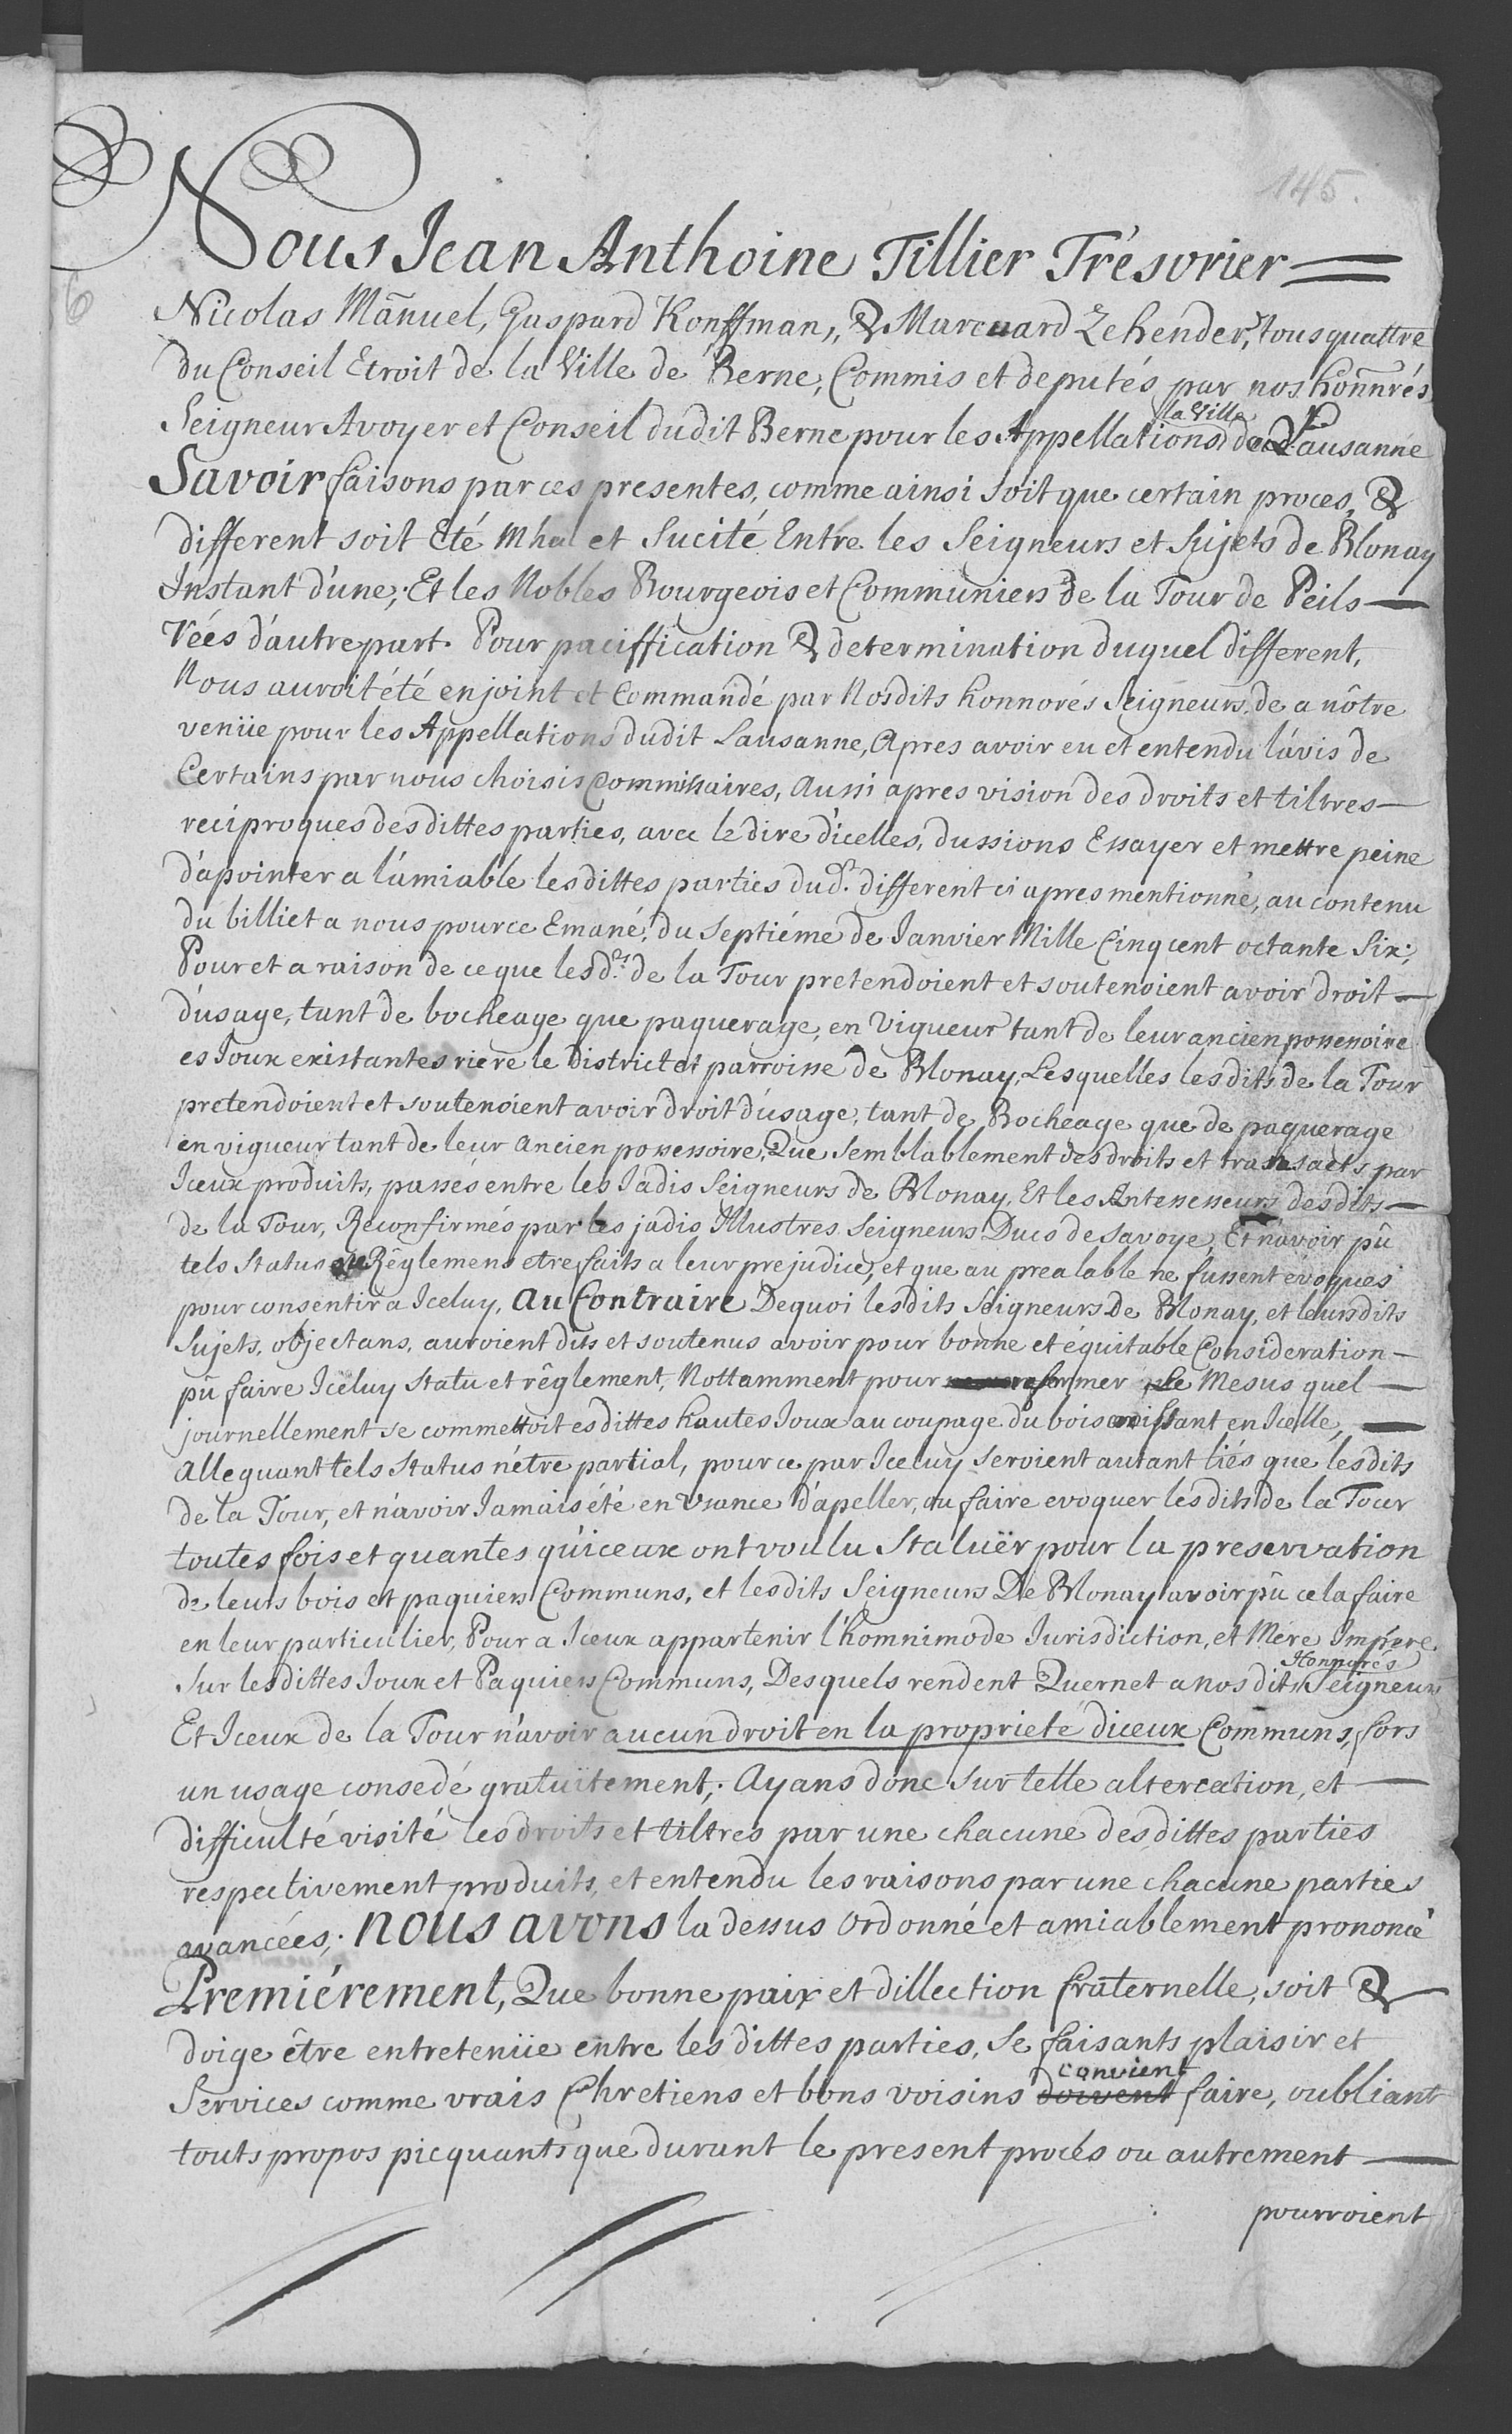 145.
Nous Jean Anthoine Tillier Trésorier
Nicolas Mañuel, Gaspard Konffman, & Marcuard Zehender, tous quattre
du Conseil Etroit de la Ville de Berne, Commis et deputés par nos honnrés
Seigneur Avoyer et Conseil dudit Berne pour les Appellations de la Ville Lausanne
Savoir faisons par ces presentes, comme ainsi soit que certain proces, &
different soit Eté Mhu et Sucité Entre les Seigneurs et Sujets de Blonay
Instant d'une; Et les Nobles Bourgeois et Communiers de la Tour de Peils
Rées d'autre part. Pour paciffication & determination duquel different,
Nous auroit été enjoint et Commandé par Nosdits honnorés Seigneurs, de a nôtre
venüe pour les Appellations dudit Lausanne, Apres avoir eu et entendu l'avis de
Certains par nous choisis Commissaires, Aussi apres vision des droits et tiltres
reciproques desdittes parties, avec le dire d'icelles, dussions Essayer et mettre peine
d'apointer a l'amiable lesdittes parties dud.t different ci apres mentionné, au contenu
du billiet a nous pource Emané, du Septiéme de Janvier Mille Cinq cent octante Six;
Pour et a raison de ce que lesd.ts de la Tour pretendoient et soutenoient avoir droit
d'usage, tant de bocheage que paquerage, en Vigueur tant de leur ancien possessoire
es Joux existantes riere le District et parroisse de Blonay, Lesquelles lesdits de la Tour
pretendoient et soutenoient avoir droit d'usage, tant de Bocheage que de paquerage
en vigueur tant de leur ancien possessoire, Que Semblablement des droits et transacts par
Iceux produits, passés entre les Jadis Seigneurs de Blonay, Et les Antessesseurs desdits
de la Tour, Reconfirmés par les jadis Illustres Seigneurs Ducs de Savoye, Et n'avoir pû
tels Status Règlemens etre faits a leur prejudice, et que au prealable ne fussent evoqués
pour consentir a Iceluy, Au Contraire Dequoi lesdits Seigneurs De Blonay, et leursdits
Sujets, objectans, auroient dits et soutenus avoir pour bonne et équitable Consideration
pû faire Iceluy Statu et règlement, Nottamment pour reformer Le Mesus quel
journellement se commettoit esdittes hautes Joux au coupage du bois croissant en Icelle,
alleguant tels Status n'étre partial, pour ce par Iceluy seroient autant liés que lesdits
de la Tour, et n'avoir Jamais été en Usance d'apeller, ou faire evoquer lesdits de la Tour
toutes fois et quantes qu'iceux ont voulu Staluër pour la preservation
de leurs bois et paquiers Communs, et lesdits Seigneurs De Blonay avoir pû cela faire
en leur particulier, Pour a Iceux appartenir l'homnimode Jurisdiction, et Mere Impere
Sur lesdittes Joux et Paquiers Communs, Desquels rendent Quernet a nos dits Honnorés Seigneurs
Et Iceux de la Tour n'avoir aucun droit en la proprieté diceux Communs, fors
un usage consedé gratuïtement; Ayans donc sur telle altercation, et
difficulté visité les droits et tiltres par une chacune desdittes parties
respectivement produits, et entendu les raisons par une chacune parties
avancées; nous avons la dessus ordonné et amiablement prononcé
Premiérement, Que bonne paix et dillection fraternelle, soit &
doige être entretenüe entre les dittes parties, Se faisants plaisir et
Services comme vrais Chretiens et bons voisins doivent convient faire, oubliant
touts propos picquants que durant le present procés ou autrement
pourroient